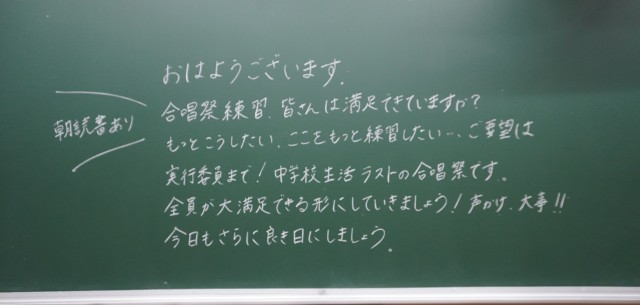 おはようございます。
合唱祭練習、皆さんは満足できていますか？
もっとこうしたい、ここをもっと練習したい…、ご要望は
実行委員まで！中学校生活ラストの合唱祭です。
全員が大満足できる形にしていきましょう！声かけ、大事！！
今日もさらに良き日にしましょう。
朝読書あり